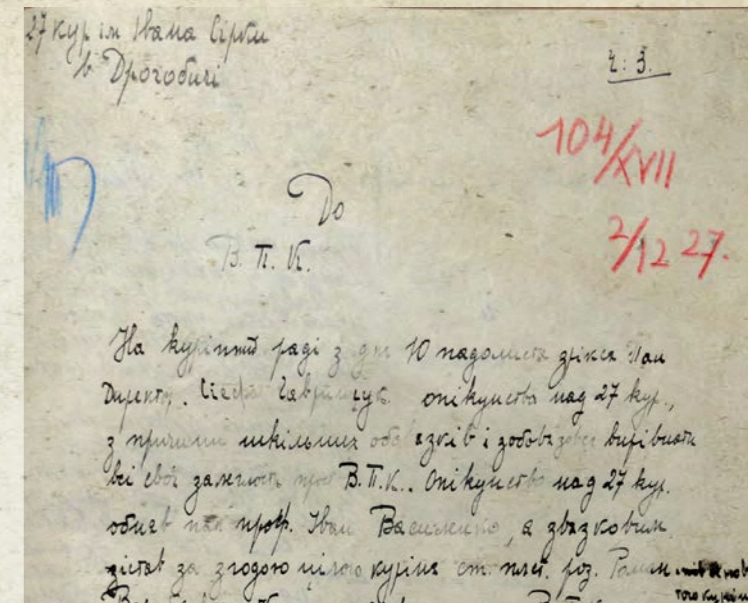 27 кур ім Івана Сірка
в Дрогобичі
Ч: 3.
104/XVII
2/12 27.
До
В. П. К.
На курінній раді з дня 10 падолиста зрікся Пан
Директор. опікунства над 27 кур.,
з причини шкільних обовязків і зобовязався вирівнати
всі свої залеглости В.П.К.. Опікунство над 27 кур.
обняв пан проф. Іван а звязковим
зістав за згодою цілого куріня ст. пласт. роз. Роман
того куріня